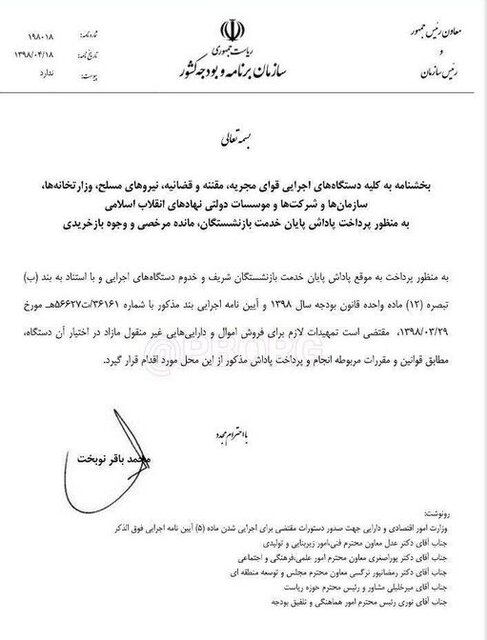 معاون رئیس جمهور
و
رئیس سازمان
ریاست جمهوری
سازمان برنامه و بودجه کشور
شماره نامه: ۱۹۸۰۱۸
تاریخ نامه: ۱۳۹۸/۰۴/۱۸
پیوست: ندارد
بسمه تعالی
بخشنامه به کلیه دستگاه‌های اجرایی قوای مجریه، مقننه و قضائیه، نیروهای مسلح، وزارتخانه‌ها،
سازمان‌ها و شرکت‌ها و موسسات دولتی نهادهای انقلاب اسلامی
به منظور پرداخت پاداش پایان خدمت بازنشستگان، مانده مرخصی و وجوه بازخریدی
به منظور پرداخت به موقع پاداش پایان خدمت بازنشستگان شریف و خدوم دستگاه‌های اجرایی و با استناد به بند (ب)
تبصره (۱۲) ماده واحده قانون بودجه سال ۱۳۹۸ و آیین نامه اجرایی بند مذکور با شماره ۳۶۱۶۱/ت۵۶۶۲۷هـ مورخ
۱۳۹۸/۰۳/۲۹، مقتضی است تمهیدات لازم برای فروش اموال و دارایی‌هایی غیر منقول مازاد در اختیار آن دستگاه،
مطابق قوانین و مقررات مربوطه انجام و پرداخت پاداش مذکور از این محل مورد اقدام قرار گیرد.
با احترام مجدد
محمد باقر نوبخت
رونوشت:
وزارت امور اقتصادی و دارایی جهت صدور دستورات مقتضی برای اجرایی شدن ماده (۵) آیین نامه اجرایی فوق الذکر
جناب آقای دکتر عدل معاون محترم فنی،امور زیربنایی و تولیدی
جناب آقای دکتر پوراصغری معاون محترم امور علمی،فرهنگی و اجتماعی
جناب آقای دکتر رمضانپور نرگسی معاون محترم مجلس و توسعه منطقه ای
جناب آقای میرخلیلی مشاور و رئیس محترم حوزه ریاست
جناب آقای نوری رئیس محترم امور هماهنگی و تلفیق بودجه